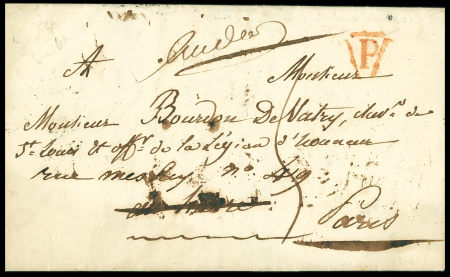 P
A
Monsieur
Monsieur Bourdon De Vatry, chev.r de
St Louis et offr. de la Légion d'honneur
rue meslay no 49
Paris